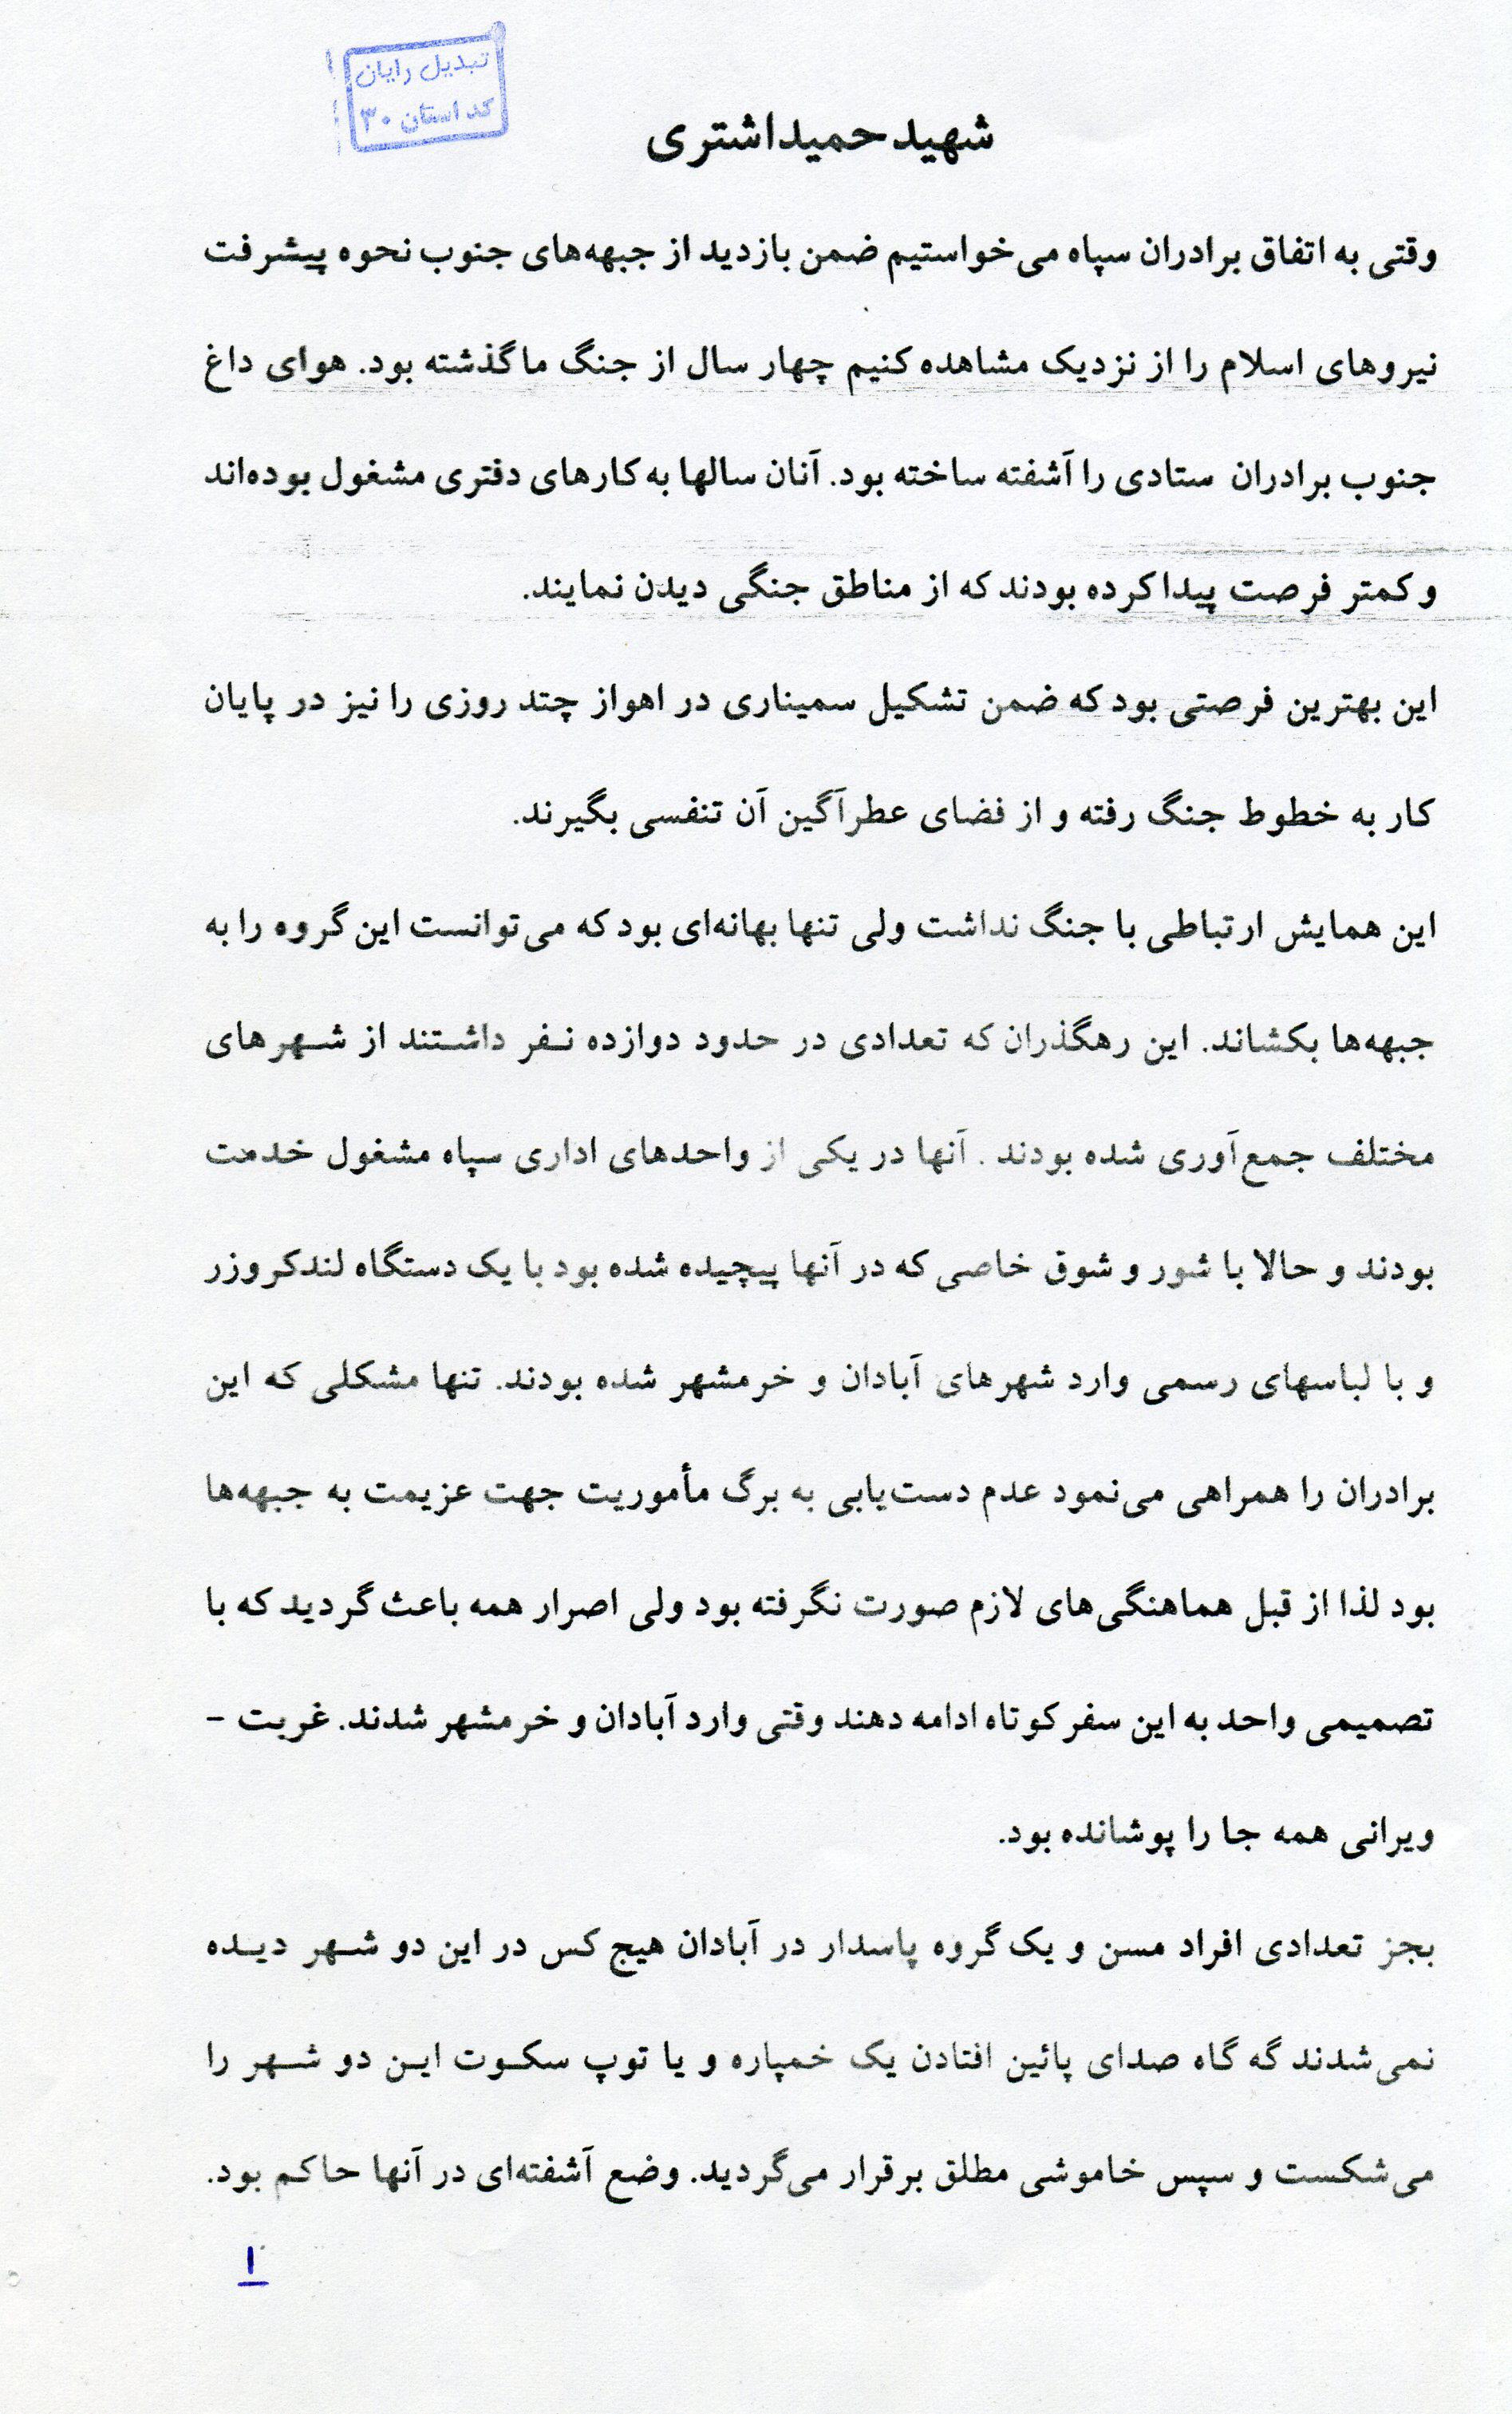 تبدیل رایان
کد استان ۳۰
شهید حمید اشتری
وقتی به اتفاق برادران سپاه می‌خواستیم ضمن بازدید از جبهه‌های جنوب نحوه پیشرفت
نیروهای اسلام را از نزدیک مشاهده کنیم چهار سال از جنگ ما گذشته بود. هوای داغ
جنوب برادران ستادی را آشفته ساخته بود. آنان سالها به کارهای دفتری مشغول بوده‌اند
و کمتر فرصت پیدا کرده بودند که از مناطق جنگی دیدن نمایند.
این بهترین فرصتی بود که ضمن تشکیل سمیناری در اهواز چتد روزی را نیز در پایان
کار به خطوط جنگ رفته و از فضای عطرآگین آن تنفسی بگیرند.
این همایش ارتباطی با جنگ نداشت ولی تنها بهانه‌ای بود که می‌توانست این گروه را به
جبهه‌ها بکشاند. این رهگذران که تعدادی در حدود دوازده نفر داشتند از شهرهای
مختلف جمع‌آوری شده بودند . آنها در یکی از واحدهای اداری سپاه مشغول خدمت
بودند و حالا با شور و شوق خاصی که در آنها پیچیده شده بود با یک دستگاه لندکروزر
و با لباسهای رسمی وارد شهرهای آبادان و خرمشهر شده بودند. تنها مشکلی که این
برادران را همراهی می‌نمود عدم دست‌یابی به برگ مأموریت جهت عزیمت به جبهه‌ها
بود لذا از قبل هماهنگی‌های لازم صورت نگرفته بود ولی اصرار همه باعث گردید که با
تصمیمی واحد به این سفر کوتاه ادامه دهند وقتی وارد آبادان و خرمشهر شدند. غربت -
ویرانی همه جا را پوشانده بود.
بجز تعدادی افراد مسن و یک گروه پاسدار در آبادان هیج کس در این دو شهر دیده
نمی‌شدند گه گاه صدای پائین افتادن یک خمپاره و یا توپ سکوت این دو شهر را
می‌شکست و سپس خاموشی مطلق برقرار می‌گردید. وضع آشفته‌ای در آنها حاکم بود.
۱